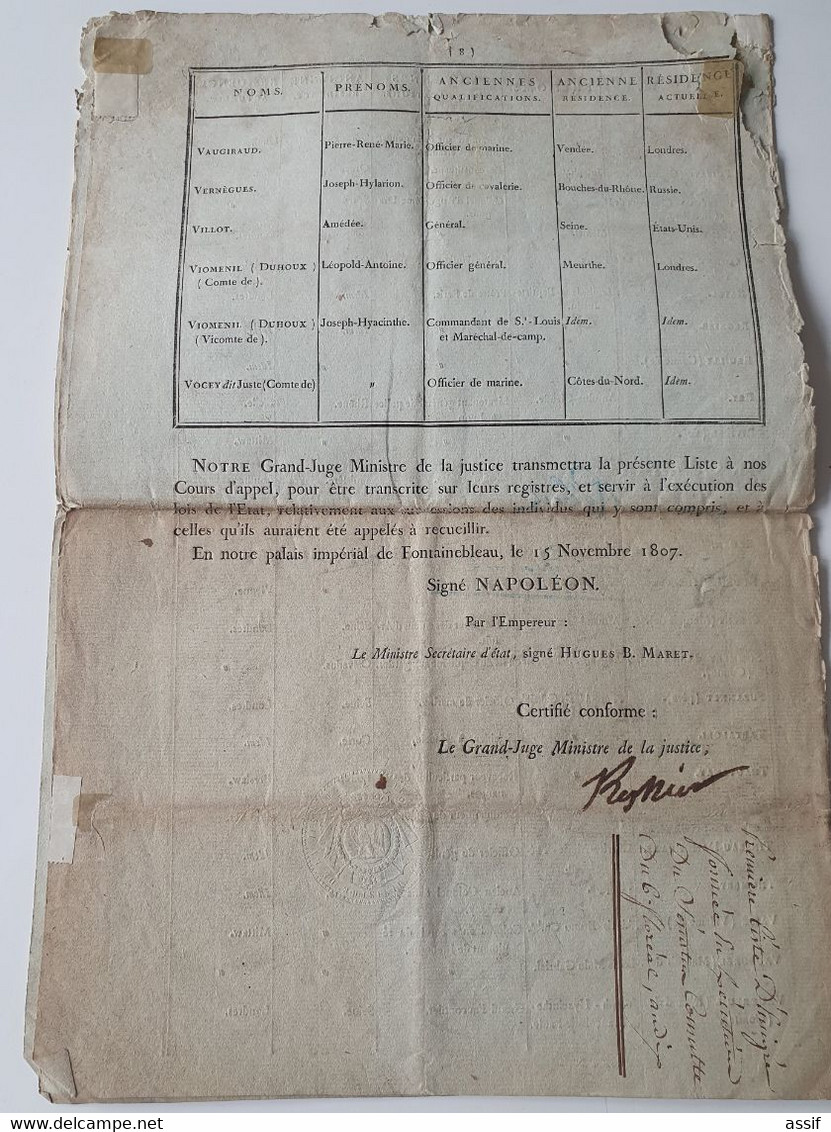 ( 8 )
NOMS. PRÉNOMS. ANCIENNES QUALIFICATIONS. ANCIENNE RÉSIDENCE. RÉSIDENCE ACTUELLE.
VAUGIRAUD. Pierre-René-Marie. Officier de marine. Vendée. Londres.
VERNÈGUES. Joseph-Hylarion. Officier de cavalerie. Bouches-du-Rhône. Russie.
VILLOT. Amédée. Général. Seine. États-Unis.
VIOMENIL ( DUHOUX ) Léopold-Antoine. Officier général. Meurthe. Londres.
( Comte de ).
VIOMENIL ( DUHOUX ) Joseph-Hyacinthe. Commandant de S.t-Louis Idem. Idem.
( Vicomte de ). et Maréchal-de-camp.
VOCEY dit Juste (Comte de) " Officier de marine. Côtes-du-Nord. Idem.
NOTRE Grand-Juge Ministre de la justice transmettra la présente Liste à nos
Cours d'appel, pour être transcrite sur leurs registres, et servir à l'exécution des
lois de l'Etat, relativement aux successions des individus qui y sont compris, et à
celles qu'ils auraient été appelés à recueillir.
En notre palais impérial de Fontainebleau, le 15 Novembre 1807.
Signé NAPOLÉON.
Par l'Empereur :
Le Ministre Secrétaire d'état, signé HUGUES B. MARET.
Certifié conforme :
Le Grand-Juge Ministre de la justice,
Regnier
Première liste D'Émigré
formée en
Du Sénatus Consulte
Du 6 floréal, an 10
assif